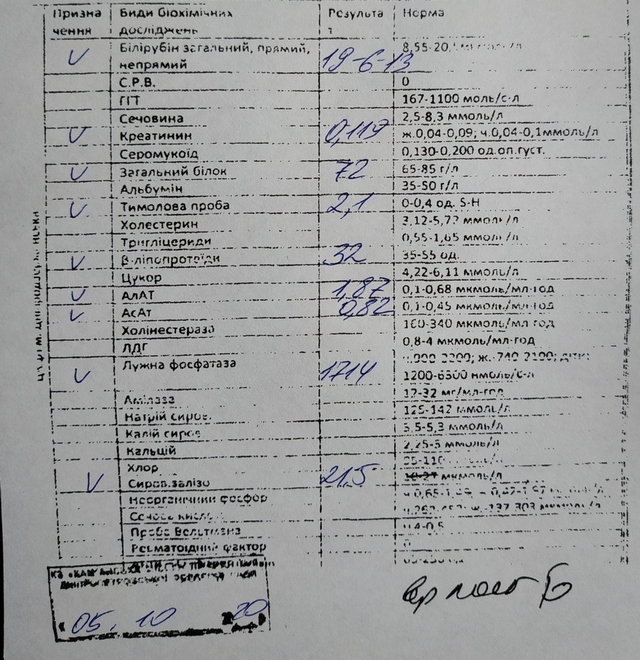 Призна Види біохімічних Результа Норма
чення досліджень т
V Білірубін загальний, прямий, 19-6-13 8,55-20,
непрямий
С.Р.В. 0
ГГТ 167-1100 моль/с-л
Сечовина 2,5-8,3 ммоль/л
V Креатинин 0,119 ж.0,04-0,09; ч.0,04-0,1ммоль/л
Серомукоїд 0,130-0,200 од.оп.густ.
V Загальний білок 72 65-85 г/л
Альбумін 35-50 г/л
V Тимолова проба 2,1 0-0,4 од. S-H
Холестерин 3,12-5,72 ммоль/л
Тригліцериди 0,55-1,65 ммоль/л
V β-ліпопротеїди 32 35-55 од.
Цукор 4,22-6,11 ммоль/л
V АлАТ 1,87 0,1-0,68 мкмоль/мл-год
V АсАт 0,82 0,1-0,45 мкмоль/мл-год
Холінестераза 160-340 мкмоль/мл год
ЛДГ 0,8-4 мкмоль/мл-год
V Лужна фосфатаза 1714
1200-6300 нмоль/с-л
Амілаза 12-32 мг/мл-год
Натрій сиров. 125-142 ммоль/л
Калій сиров 3,5-5,3 ммоль/л
Кальцій ммоль/л
Хлор
V Сиров.залізо 21,5 мкмоль/л
Неорганічний фосфор
Сечова
Проба Вельтмана 0,4-0,5
Ревматоїдний фактор
05. 10 20